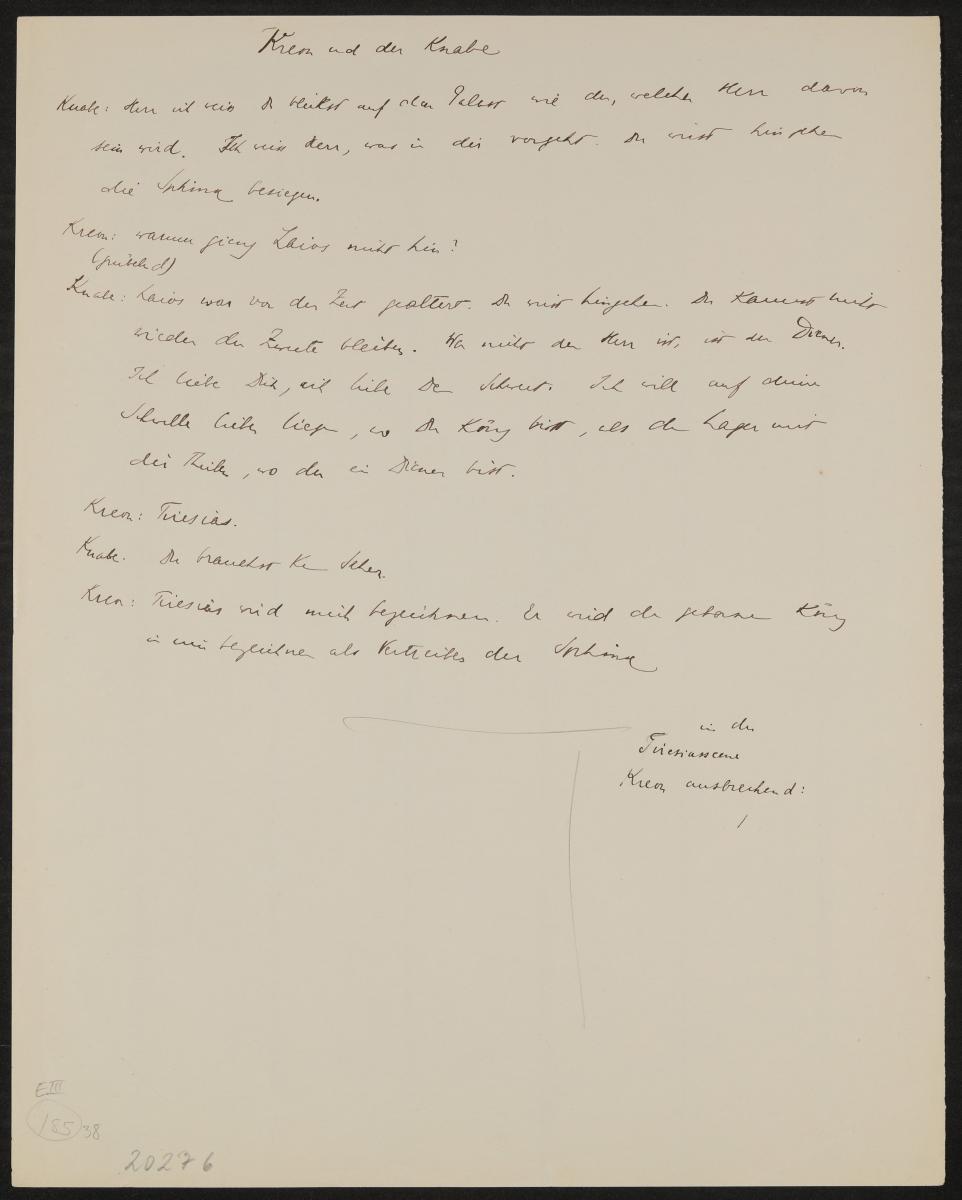 Kreon und der Knabe
Knabe: Herr ich weiss Du blickst auf den Palast wie der, welcher Herr davon
sein wird. Ich weiss Herr, was in dir vorgeht. Du wirst hingehen
die Sphinx besiegen.
Kreon: warum gieng Laios nicht hin?
(grübelnd)
Knabe: Laios war vor der Zeit gealtert. Du wirst hingehen. Du kannst nicht
wieder der Zweite bleiben. Wo nicht der Herr ist, ist der Diener.
Ich liebe Dich, ich liebe Dein Schwert. Ich will auf deiner
Schwelle lieber liegen, wo Du König bist, als das Lager mit
dir theilen, wo du ein Diener bist.
Kreon: Tiresias.
Knabe. Du brauchst kein Seher.
Kreon: Tiresias wird mich bezeichnen. Er wird den geborenen König
in mir bezeichnen als Vertreiber der Sphinx
in der
Tiresiasscene
Kreon ausbrechend:
/
EIII
185
38
20276